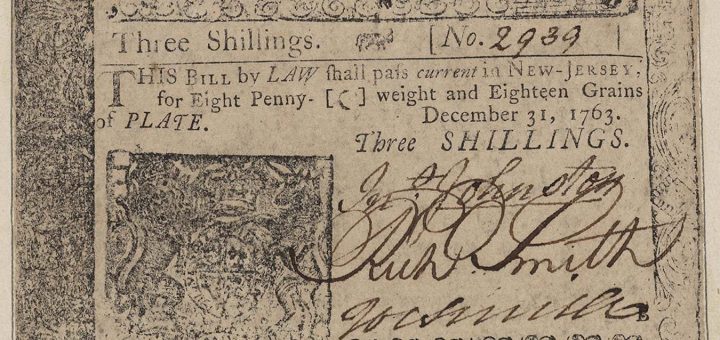 Three Shillings. [No. 2939]
THIS BILL by LAW ſhall paſs current in NEW-JERSEY,
for Eight Penny-[ ] weight and Eighteen Grains
of PLATE. December 31, 1763.
Three SHILLINGS.
Jno. Johnston
Richd. Smith